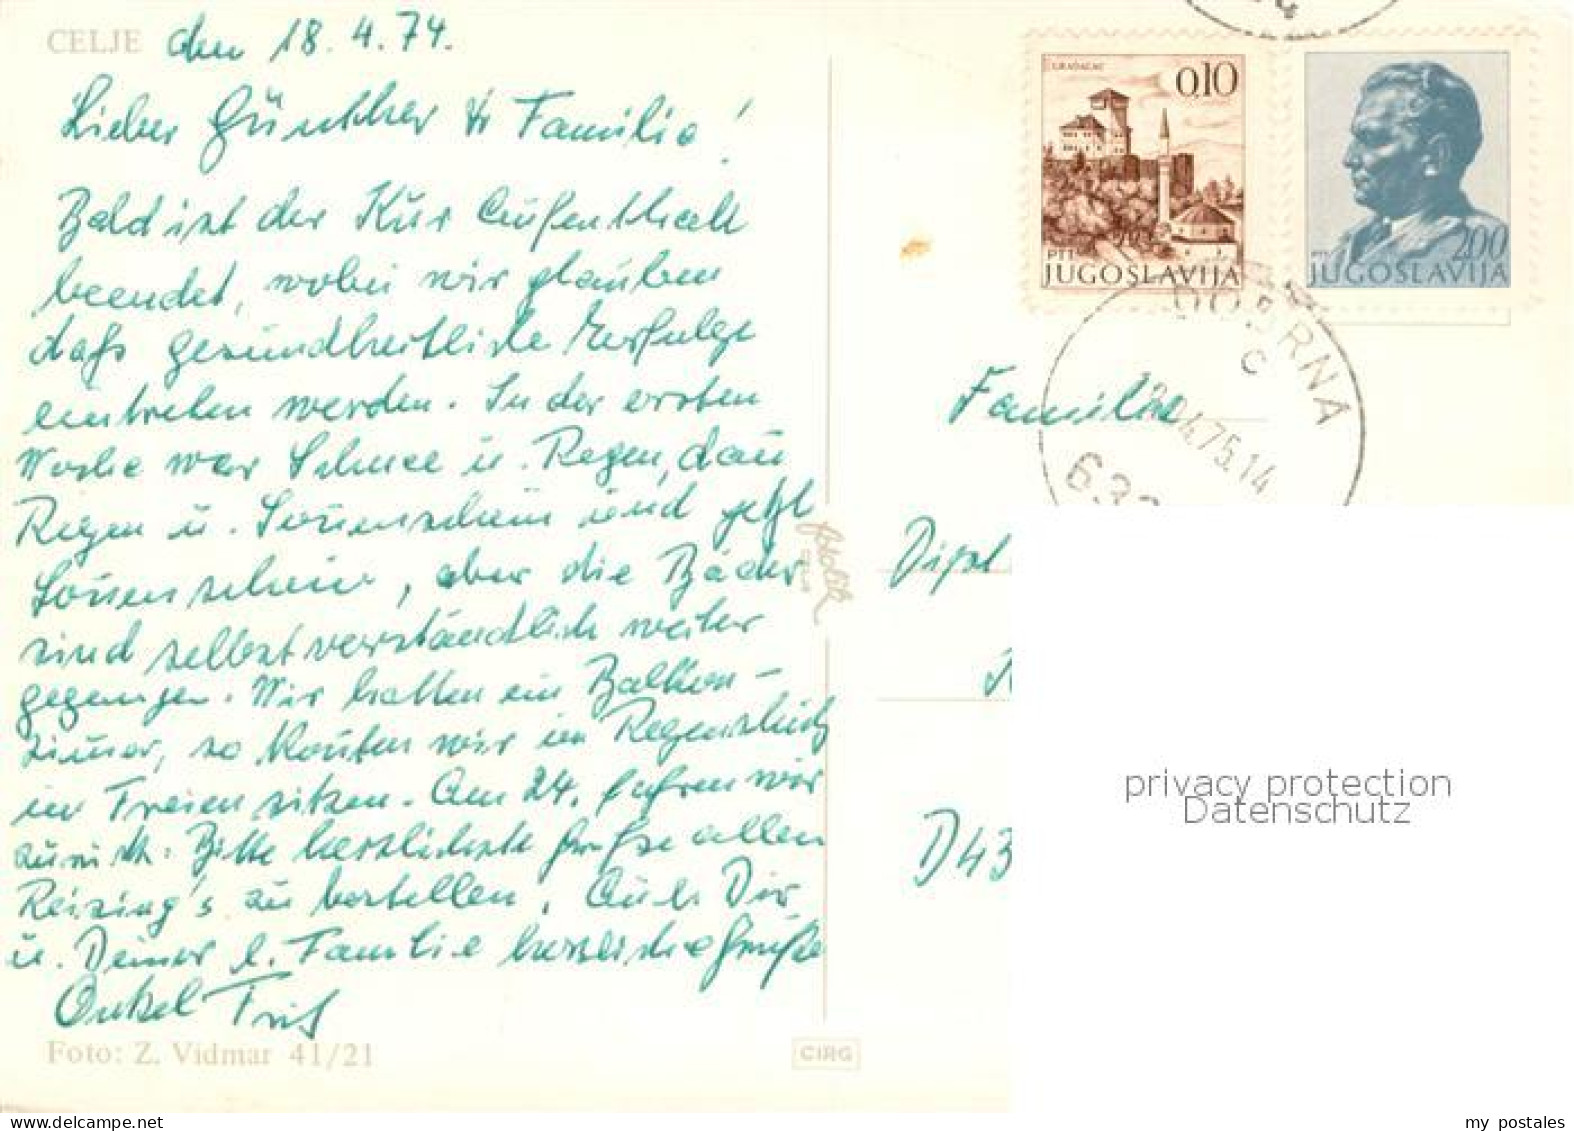 CELJE den 18.4.74.
Lieber Günther & Familie!
Bald ist der Kur Aufenthalt
beendet, wobei wir glauben
daß gesundheitliche Erfolge
eintreten werden. In der ersten
Woche war Schnee u. Regen, dan
Regen u. Sonnenschein und jetzt
Sonnenschein, aber die Bäder
sind selbstverständlich weiter
gegangen. Wir hatten ein Balkon-
zimer, so konten wir im Regenschutz
im Freien sitzen. Am 24. fahren wir
zurück. Bitte herzlichste Grüße allen
Reizing's zu bestellen. Auch Dir
u. Deiner l. Familie herzliche Grüße
Onkel
Foto: Z. Vidmar 41/21
CIRG
fotolik
CELJE
GRADAČAC
0,10
PTT
JUGOSLAVIJA
2,00
PTT
JUGOSLAVIJA
DOBRNA
C
04.75.14
Familie
Dipl
D43
privacy protection
Datenschutz
my postales